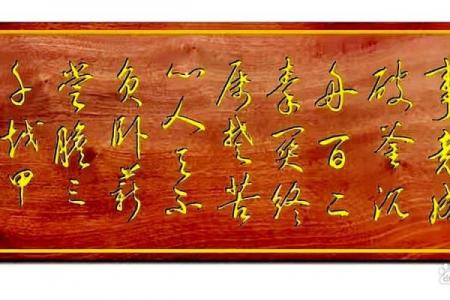 事竟成
破釜沉
舟百二
秦关终
属楚苦
心人天不
负卧薪
尝膽三
千越甲